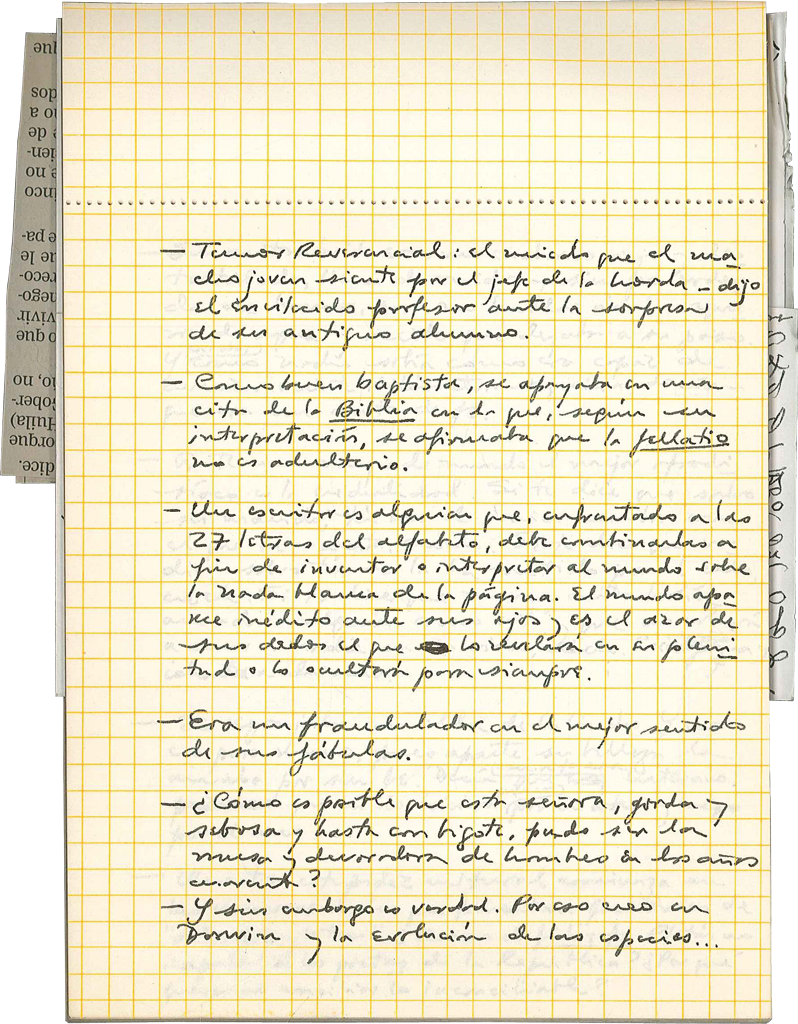 — Temor Reverencial: el miedo que el ma-
cho joven siente por el jefe de la horda – dijo
el envilecido profesor ante la sorpresa
de su antiguo alumno.
— Como buen baptista, se apoyaba en una
cita de la Biblia en la que, según su
interpretación, se afirmaba que la fellatio
no es adulterio.
— Un escritor es alguien que, enfrentado a las
27 letras del alfabeto, debe combinarlas a
fin de inventar o interpretar al mundo sobre
la nada blanca de la página. El mundo apa-
rece inédito ante sus ojos y es el azar de
sus dedos el que lo revelará en su pleni-
tud o lo ocultará para siempre.
— Era un fraudulador en el mejor sentido
de sus fábulas.
— ¿Cómo es posible que esta señora, gorda y
sebosa y hasta con bigote, pudo ser la
musa y devoradora de hombres en los años
cuarenta?
— Y sin embargo es verdad. Por eso creo en
Darwin y la evolución de las especies...
que
dos
no a
e de
ien-
e no
inco
e pa-
ue le
reco-
nego-
vivir
o que
io, no
Gober-
Huila)
orque
dice.